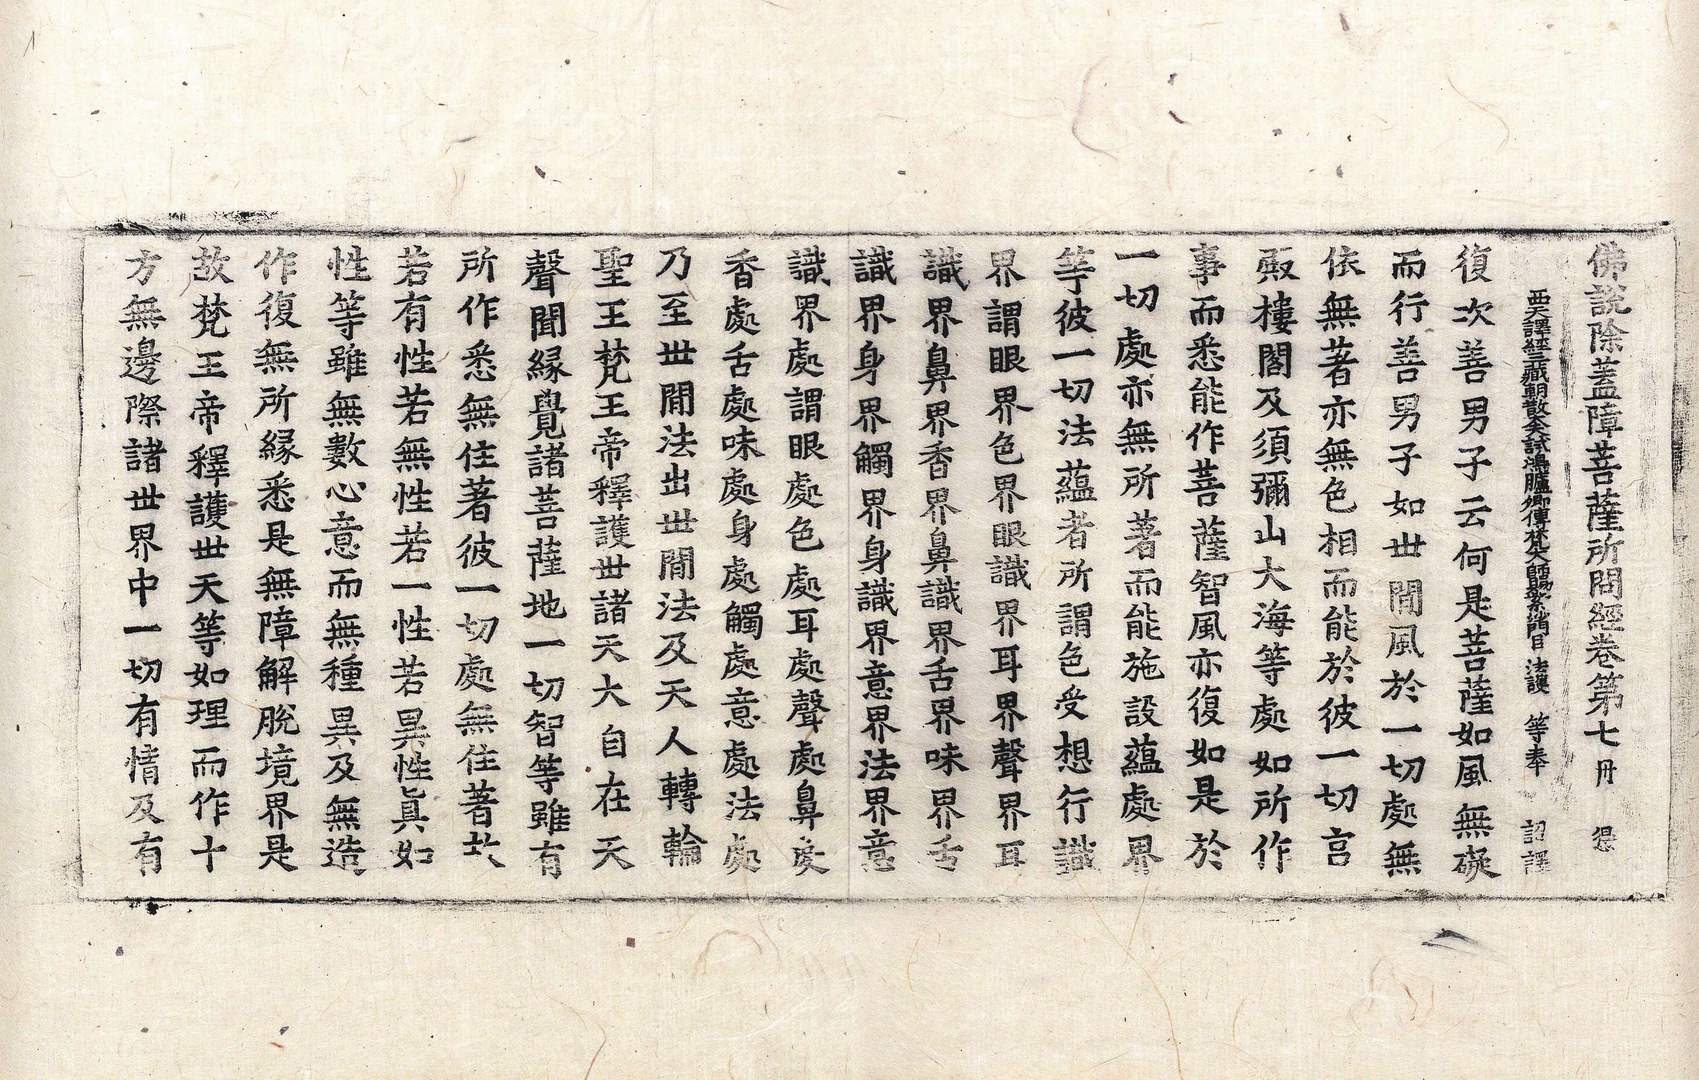 佛說除蓋障菩薩所問經卷第七 冊
西天譯經三藏朝散大夫試鴻臚卿傳梵大師賜紫沙門臣 法護 等奉 詔譯
復次善男子云何是菩薩如風無礙
而行善男子如世間風於一切處無
依無著亦無色相而能於彼一切宮
殿樓閣及須彌山大海等處如所作
事而悉能作菩薩智風亦復如是於
一切處亦無所著而能施設蘊處界
等彼一切法蘊者所謂色受想行識
界謂眼界色界眼識界耳界聲界耳
識界鼻界香界鼻識界舌界味界舌
識界身界觸界身識界意界法界意
識界處謂眼處色處耳處聲處鼻處
香處舌處味處身處觸處意處法處
乃至世間法出世間法及天人轉輪
聖王梵王帝釋護世諸天大自在天
聲聞緣覺諸菩薩地一切智等雖有
所作悉無住著彼一切處無住著故
若有性若無性若一性若異性真如
性等雖無數心意而無種異及無造
作復無所緣悉是無障解脫境界是
故梵王帝釋護世天等如理而作十
方無邊際諸世界中一切有情及有